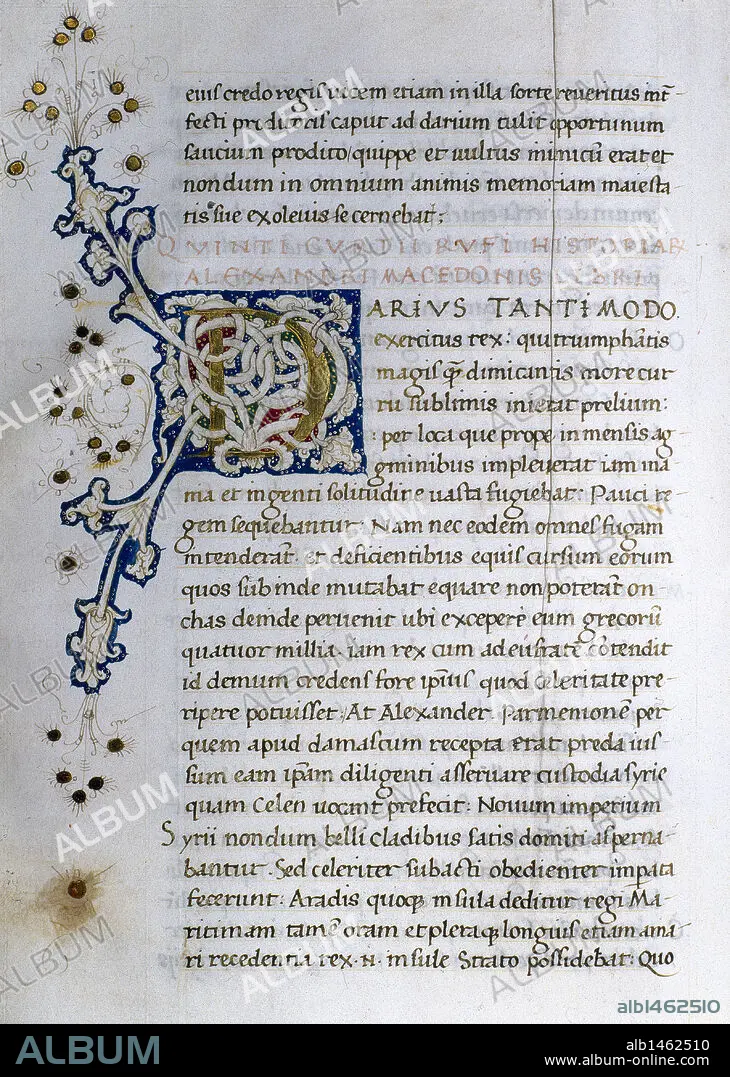 eius credo regis vicem etiam in illa sorte reveritus int̄-
fecti prodītoris caput ad darium tulit opportunum
saucium prodito/quippe et vultus inimicū erat et
nondum in omnium animis memoriam maiesta-
tis sue exolevisse cernebat;
QVINTI CVRTII RVFI HISTORIAR
ALEXANDRI MACEDONIS LBRI
DARIVS TANTI MODO.
exercitus rex: qui triumphātis
magis q̄ dimicātis more cur
ru sublimis inierat prelium:
: per loca que prope inmensis ag
gminibus impleverat iam ina
nia et ingenti solitudine vasta fugiebat: Pauci re-
gem sequebantur. Nam nec eodem omnes fugam
intenderāt. et deficientibus equis cursum eorum
quos subinde mutabat equare non poterāt. on
chas deinde pervenit ubi excepere eum grecorū
quatuor millia. iam rex cum ad eufratē cōtendit
id demum credens fore ipsius quod celeritate pre-
ripere potuisset: At Alexander Parmenionē per
quem apud damascum recepta erat preda ius
sum eam ip̄am diligenti asservare custodia syrie
quam Celen vocant prefecit: Novum imperium
Syrii nondum belli cladibus satis domiti asperna-
bantur. Sed celeriter subacti obedienter imp̄ata
fecerunt: Aradis quoq; insula deditur regi Ma-
ritimam tamē oram et pleraq; longius etiam a ma
ri recedentia rex .N. insule Strato possidebat: Quo
ALBUM
alb1462510
ALBUM
alb1462510
www.album-online.com